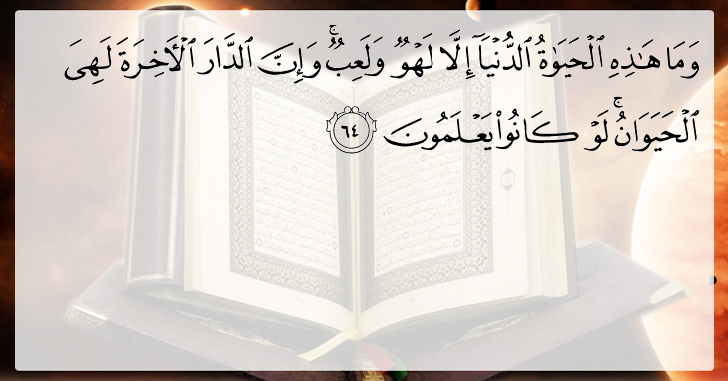 وَمَا هَـٰذِهِ ٱلْحَيَوٰةُ ٱلدُّنْيَآ إِلَّا لَهْوٌ وَلَعِبٌ ۚ وَإِنَّ ٱلدَّارَ ٱلْـَٔاخِرَةَ لَهِىَ
ٱلْحَيَوَانُ ۚ لَوْ كَانُوا۟ يَعْلَمُونَ ٦٤